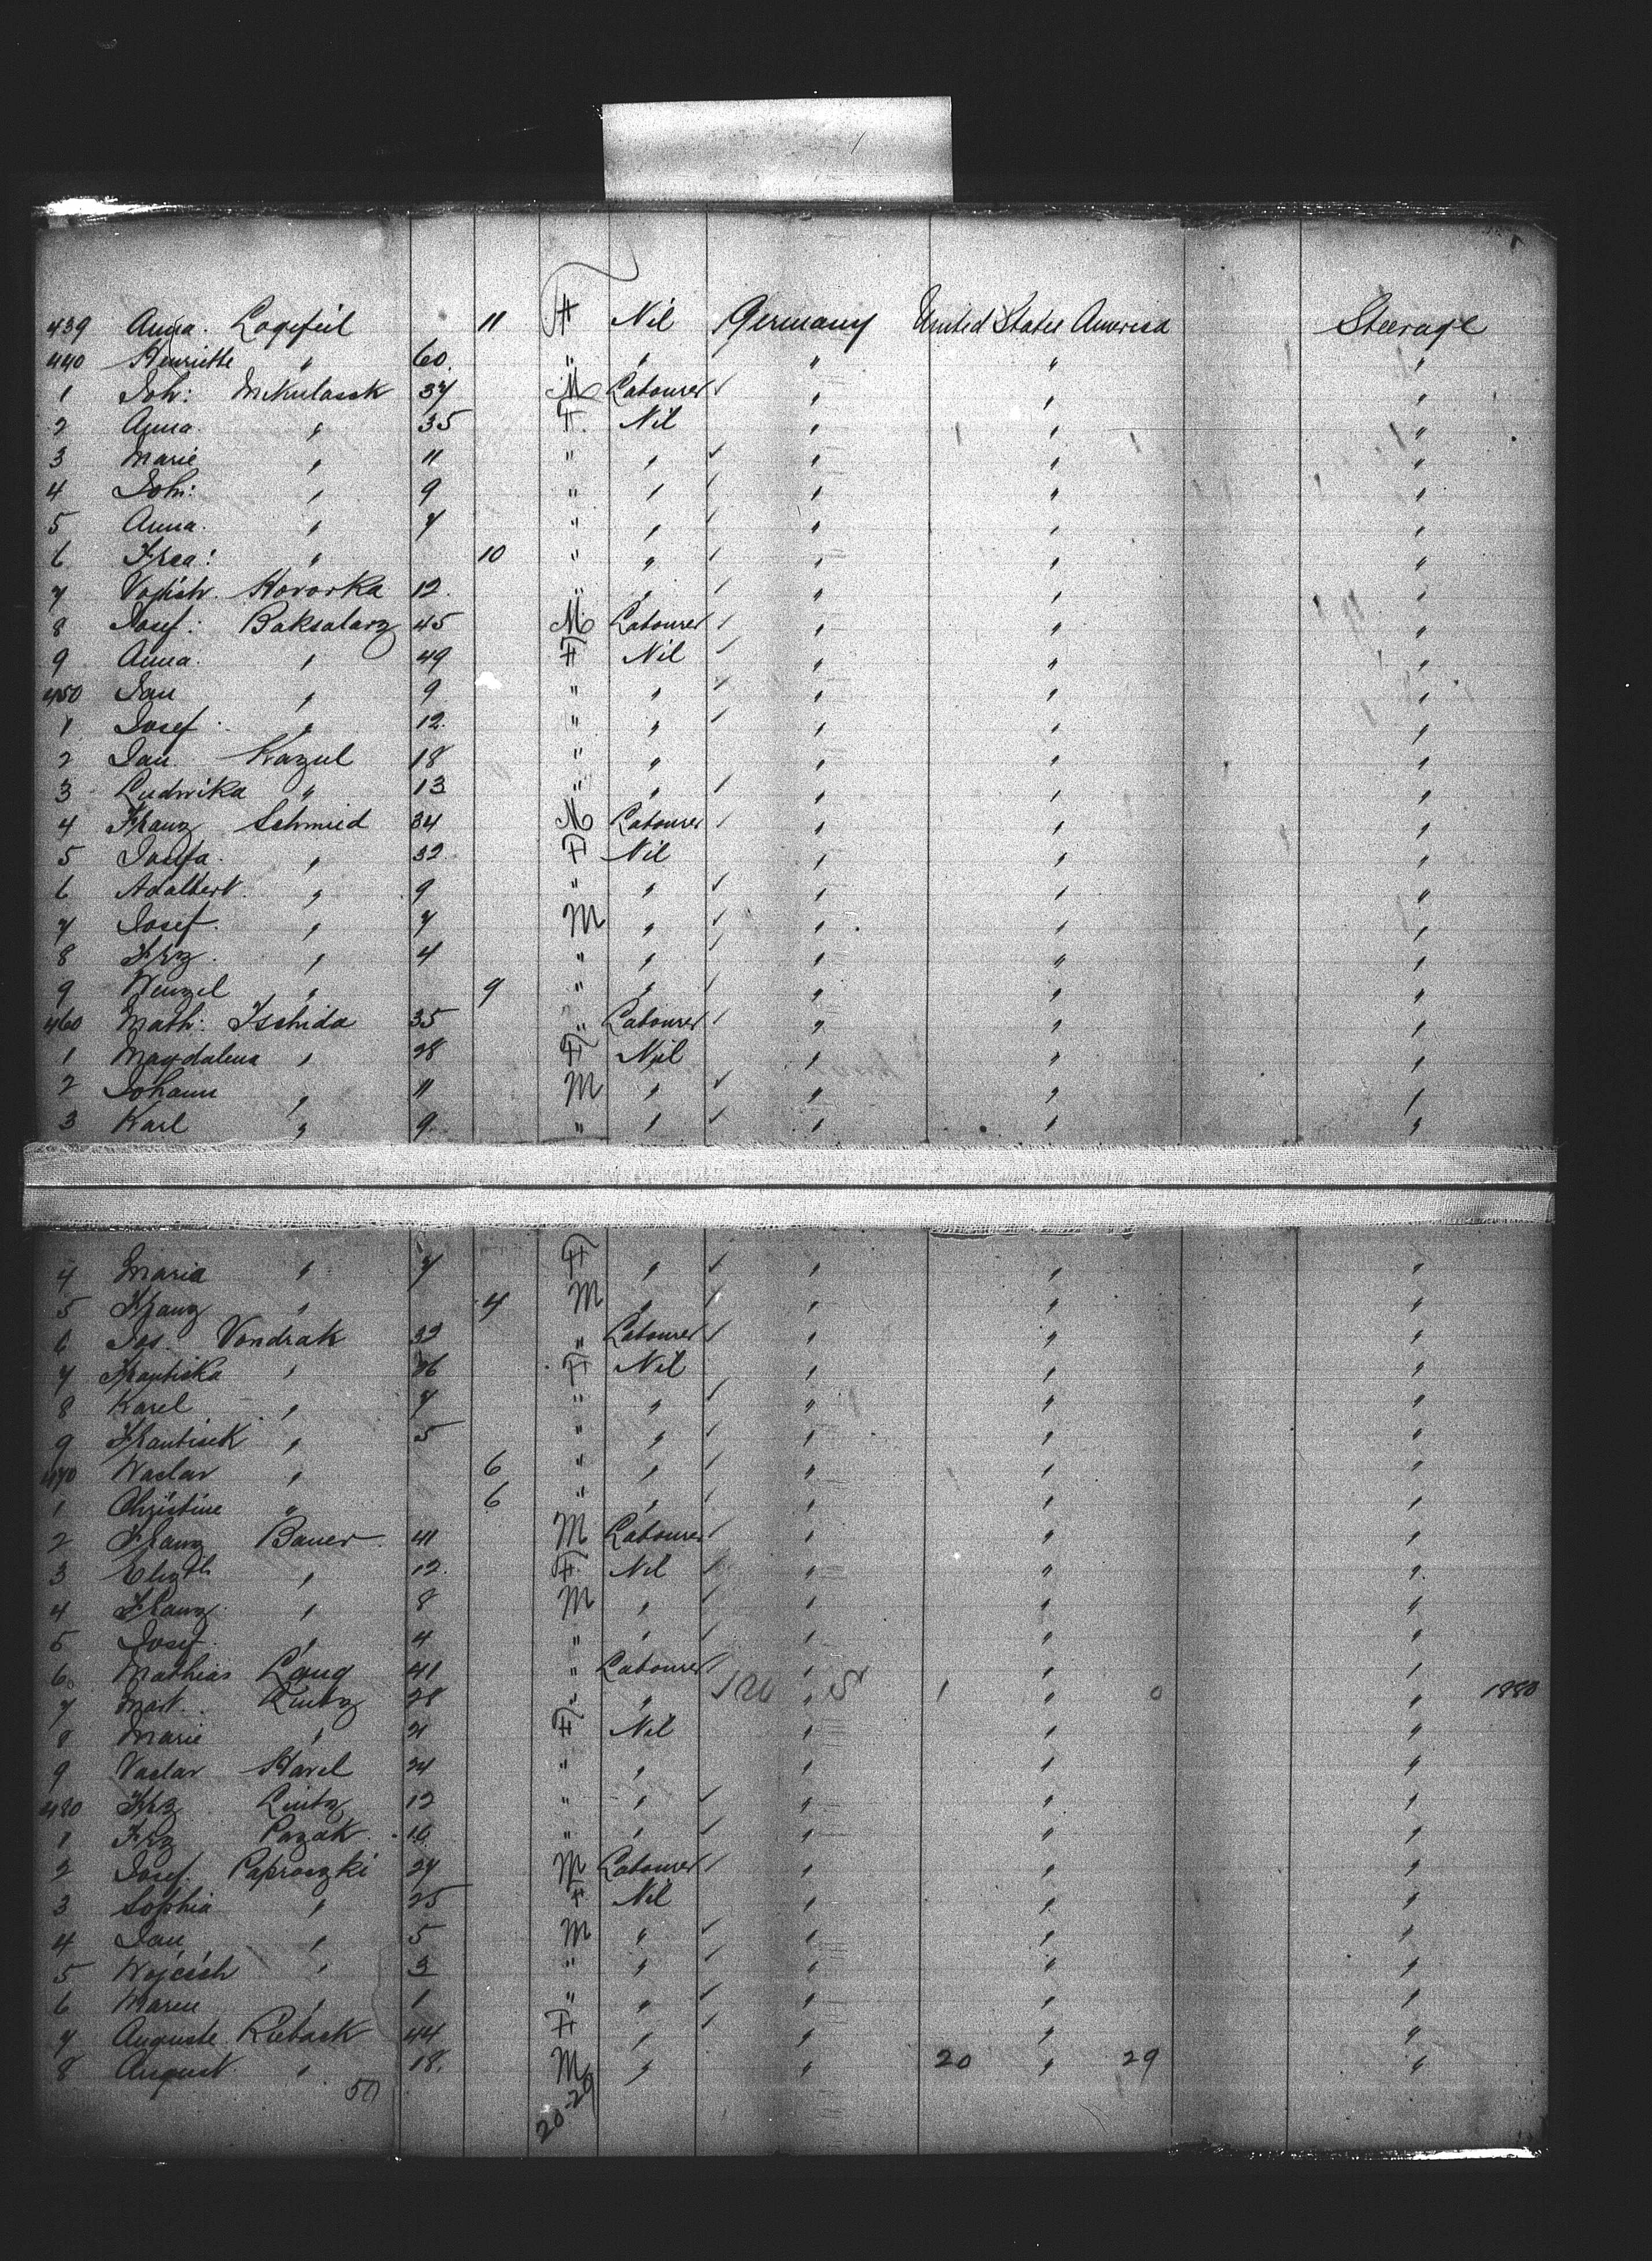 439 Anna. Logefeil 11 F Nil Germany United States America Steerage
440 Henriette " 60. " " " " "
1 Joh: Mikulassk 37 M Labourer " " "
2 Anna. " 35 F. Nil " " "
3 Marie " 11 " " " " "
4 Joh: " 9 " " " " "
5 Anna. " 7 " " " " "
6 Frca: " 10 " " " " "
7 Vojtěch. Hovorka 12. " " " " "
8 Josef: Baksalarz 45 M Labourer " " "
9 Anna. " 49 F Nil " " "
450 Jan " 9 " " " " "
1 Josef " 12. " " " " "
2 Jan Kazul 18 " " " " "
3 Ludwika " 13 " " " " "
4 Franz Schmied 34 M Labourer " " "
5 Josefa. " 32 F Nil " " "
6 Adalbert. " 9 " " " " "
7 Josef. " 7 M " " " "
8 Frz. " 4 " " " " "
9 Wenzel " 9 " " " " "
460 Math: Tschida 35 " Labourer " " "
1 Magdalena " 28 F Nil " " "
2 Johann " 11 M " " " "
3 Karl " 9. " " " " "
4 Maria " 7 F " " " "
5 Franz " 4 M " " " "
6 Jos. Vondrak 32 " Labourer " " "
7 Frantiska " 26 F Nil " " "
8 Karel " 7 " " " " "
9 Frantisek " 5 " " " " "
470 Waclav " 6 " " " " "
1 Christine " 6 " " " " "
2 Franz Bauer. 41 M Labourer " " "
3 Elizth " 12. F. Nil " " "
4 Franz. " 8 M " " " "
5 Josef. " 4 " " " " "
6 Mathias Lang 41 " Labourer " " "
7 Mart. Lintz 28 " " " 1 " 0 " 1880
8 Marie " 21 F Nil " " "
9 Vaclav Havel 24 " " " " "
480 Frz Lintz 12 " " " " "
1 Frz Pazak. 16. " " " " "
2 Josef. Paproszki 27 M Labourer " " "
3 Sophia " 25 F Nil " " "
4 Jan " 5 M " " " "
5 Wojciech " 3 " " " " "
6 " 1 " " " " "
7 Auguste 44 F " " " "
8 August. " 18. M " " 20 " 29 "
50
20-29